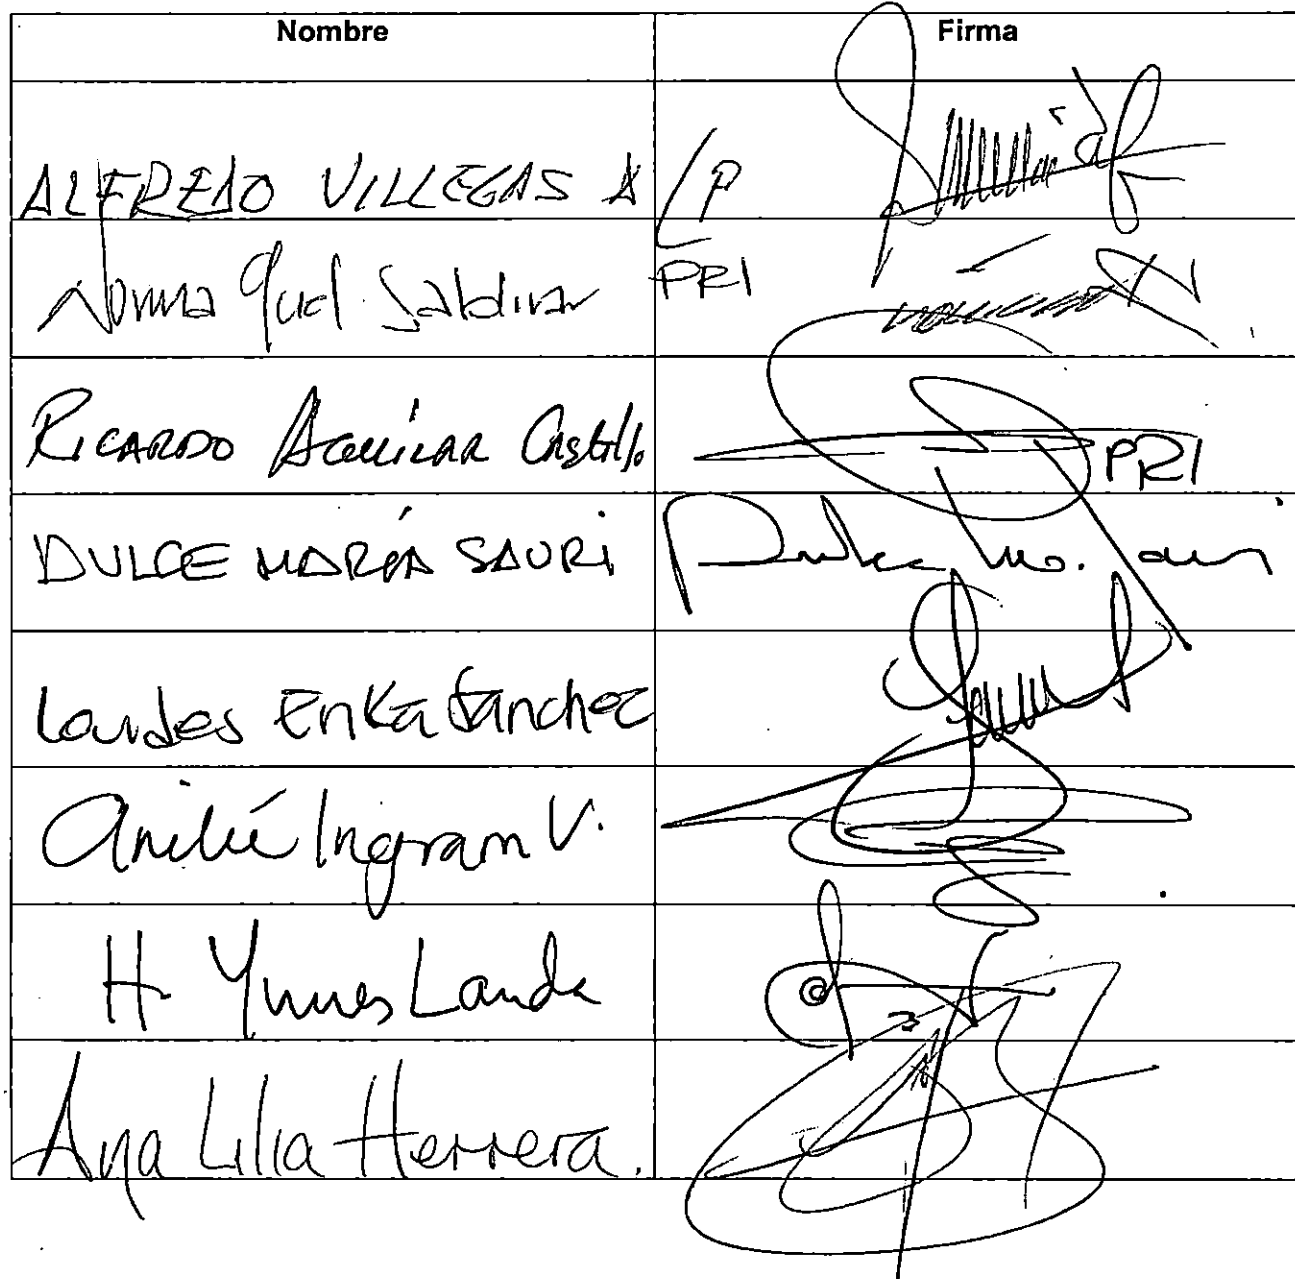 Nombre Firma
ALFREDO VILLEGAS A
Norma Guel Saldívar PRI
RICARDO AGUILAR Castillo PRI
DULCE MARÍA SAURI Dulce Ma. Sauri
Lourdes Erika Sánchez
Anilú Ingram V.
H Yunes Landa
Ana Lilia Herrera.